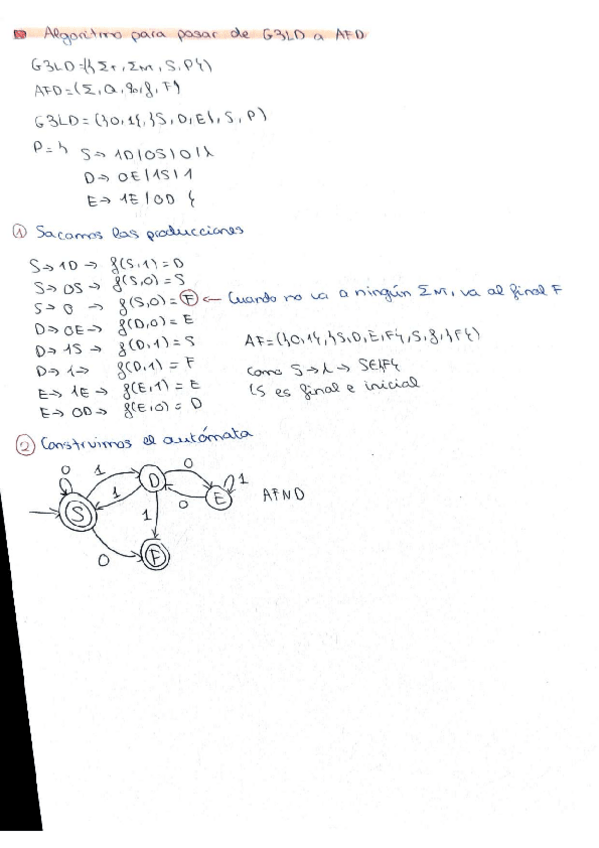 Algoritmo para pasar de G3LD a AFD
G3LD={{ΣT, ΣN, S, P}}
AFD=(Σ, Q, q0, f, F)
G3LD=({0,1}, {S, D, E}, S, P)
P={ S→ 1D/0S/0/λ
D→ 0E/1S/1
E→ 1E/0D }
① Sacamos las producciones
S→1D → f(S,1)=D
S→0S → f(S,0)=S
S→0 → f(S,0)=F ← Cuando no va a ningún ΣN, va al final F
D→0E→ f(D,0)=E
D→1S → f(D,1)=S
D→1→ f(D,1)=F
E→1E→ f(E,1)=E
E→0D→ f(E,0)=D
AF=({0,1}, {S,D,E,F}, S, f, {F})
como S→λ → S∈{F}
S es final e inicial
② Construimos el autómata
0 1 D 0 1
S 1 0 E AFND
1
0 F